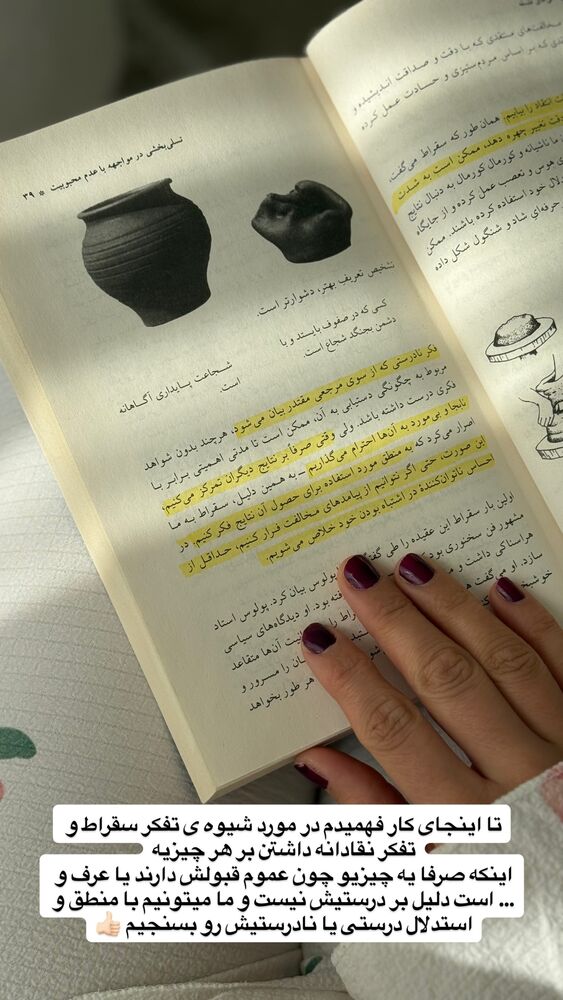 تسلی‌بخشی در مواجهه با عدم محبوبیت * ۳۹
تشخیص تعریف بهتر، دشوارتر است.
کسی که در صفوف بایستد و با
دشمن بجنگد شجاع است.
شجاعت پایداری آگاهانه
است.
فکر نادرستی که از سوی مرجعی مقتدر بیان می‌شود، هرچند بدون شواهد
مربوط به چگونگی دستیابی به آن، ممکن است تا مدتی اهمیتی برابر با
فکری درست داشته باشد. ولی وقتی صرفاً بر نتایج دیگران تمرکز می‌کنیم،
نابجا و بی‌مورد به آن‌ها احترام می‌گذاریم – به همین دلیل، سقراط به ما
اصرار می‌کرد که به منطق مورد استفاده برای حصول آن نتایج فکر کنیم. در
این صورت، حتی اگر نتوانیم از پیامدهای مخالفت فرار کنیم، حداقل از
احساس ناتوان‌کنندهٔ در اشتباه بودن خود خلاص می‌شویم.
اولین بار سقراط این عقیده را طی
پولوس بیان کرد. پولوس استاد
مشهور فن سخنوری بود
بود. او دیدگاه‌های سیاسی
هراسناکی داشت و
آن‌ها متقاعد
سازد. او می‌گفت
را مسرور و
هر طور بخواهد
مخالفت‌های منتقدی که با دقت و صداقت اندیشیده و
که بر اساس مردم‌ستیزی و حسادت عمل کرده
انتقاد را بیابیم. همان طور که سقراط می‌گفت،
تغییر چهره دهد، ممکن است به شدت
ناشیانه و کورمال کورمال به دنبال نتایج
هوس و تعصب عمل کرده و از جایگاه
خود استفاده کرده باشند. ممکن
حرفه‌ای شاد و شنگول شکل داده
تا اینجای کار فهمیدم در مورد شیوه ی تفکر سقراط و
تفکر نقادانه داشتن بر هر چیزیه
اینکه صرفا یه چیزیو چون عموم قبولش دارند یا عرف و
... است دلیل بر درستیش نیست و ما میتونیم با منطق و
استدلال درستی یا نادرستیش رو بسنجیم 👍🏻